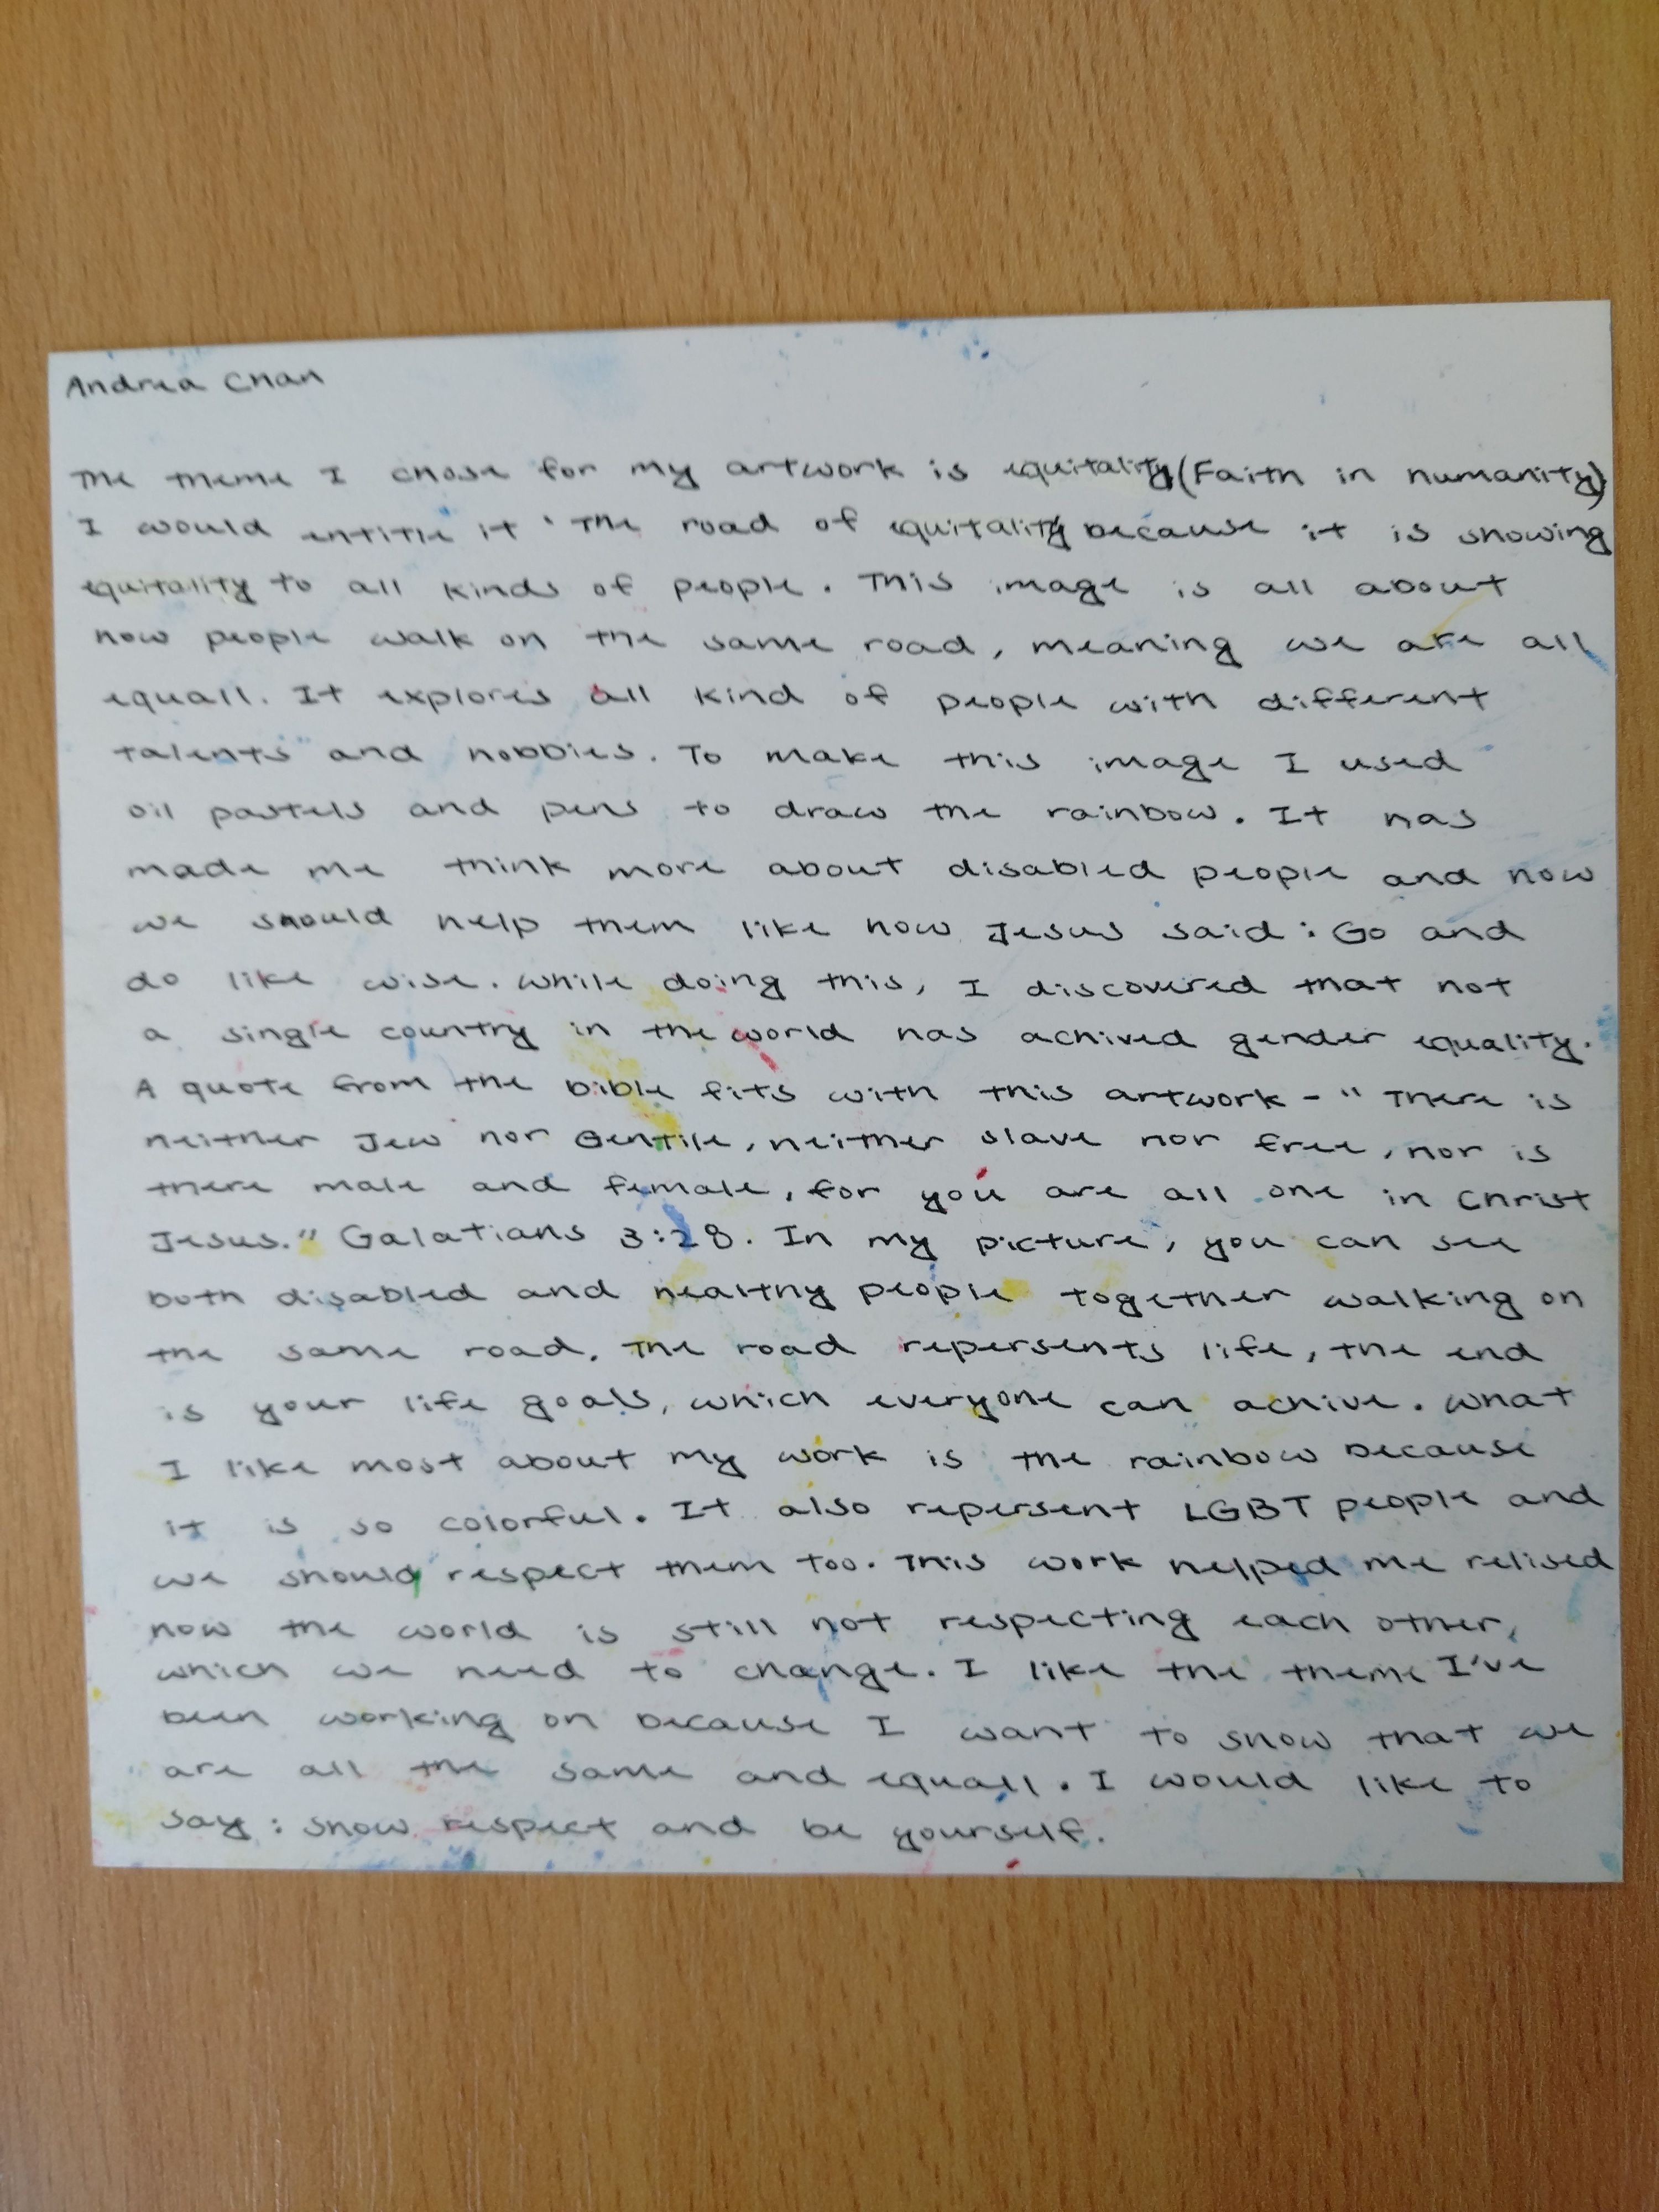 Andrea Chan
The theme I chose for my artwork is equitality (Faith in humanity)
I would entitle it 'The road of equitality because it is showing
equitality to all kinds of people. This image is all about
how people walk on the same road, meaning we are all
equall. It explores all kind of people with different
talents and hobbies. To make this image I used
oil pastels and pens to draw the rainbow. It has
made me think more about disabled people and how
we should help them like how Jesus said: Go and
do like wise. While doing this, I discovered that not
a single country in the world has achived gender equality.
A quote from the bible fits with this artwork - "There is
neither Jew nor Gentile, neither slave nor free, nor is
there male and female, for you are all one in Christ
Jesus." Galatians 3:28. In my picture, you can see
both disabled and healthy people together walking on
the same road. The road repersents life, the end
is your life goals, which everyone can achive. What
I like most about my work is the rainbow because
it is so colorful. It also repersent LGBT people and
we should respect them too. This work helped me relised
how the world is still not respecting each other,
which we need to change. I like the theme I've
been working on because I want to show that we
are all the same and equall. I would like to
say: show respect and be yourself.